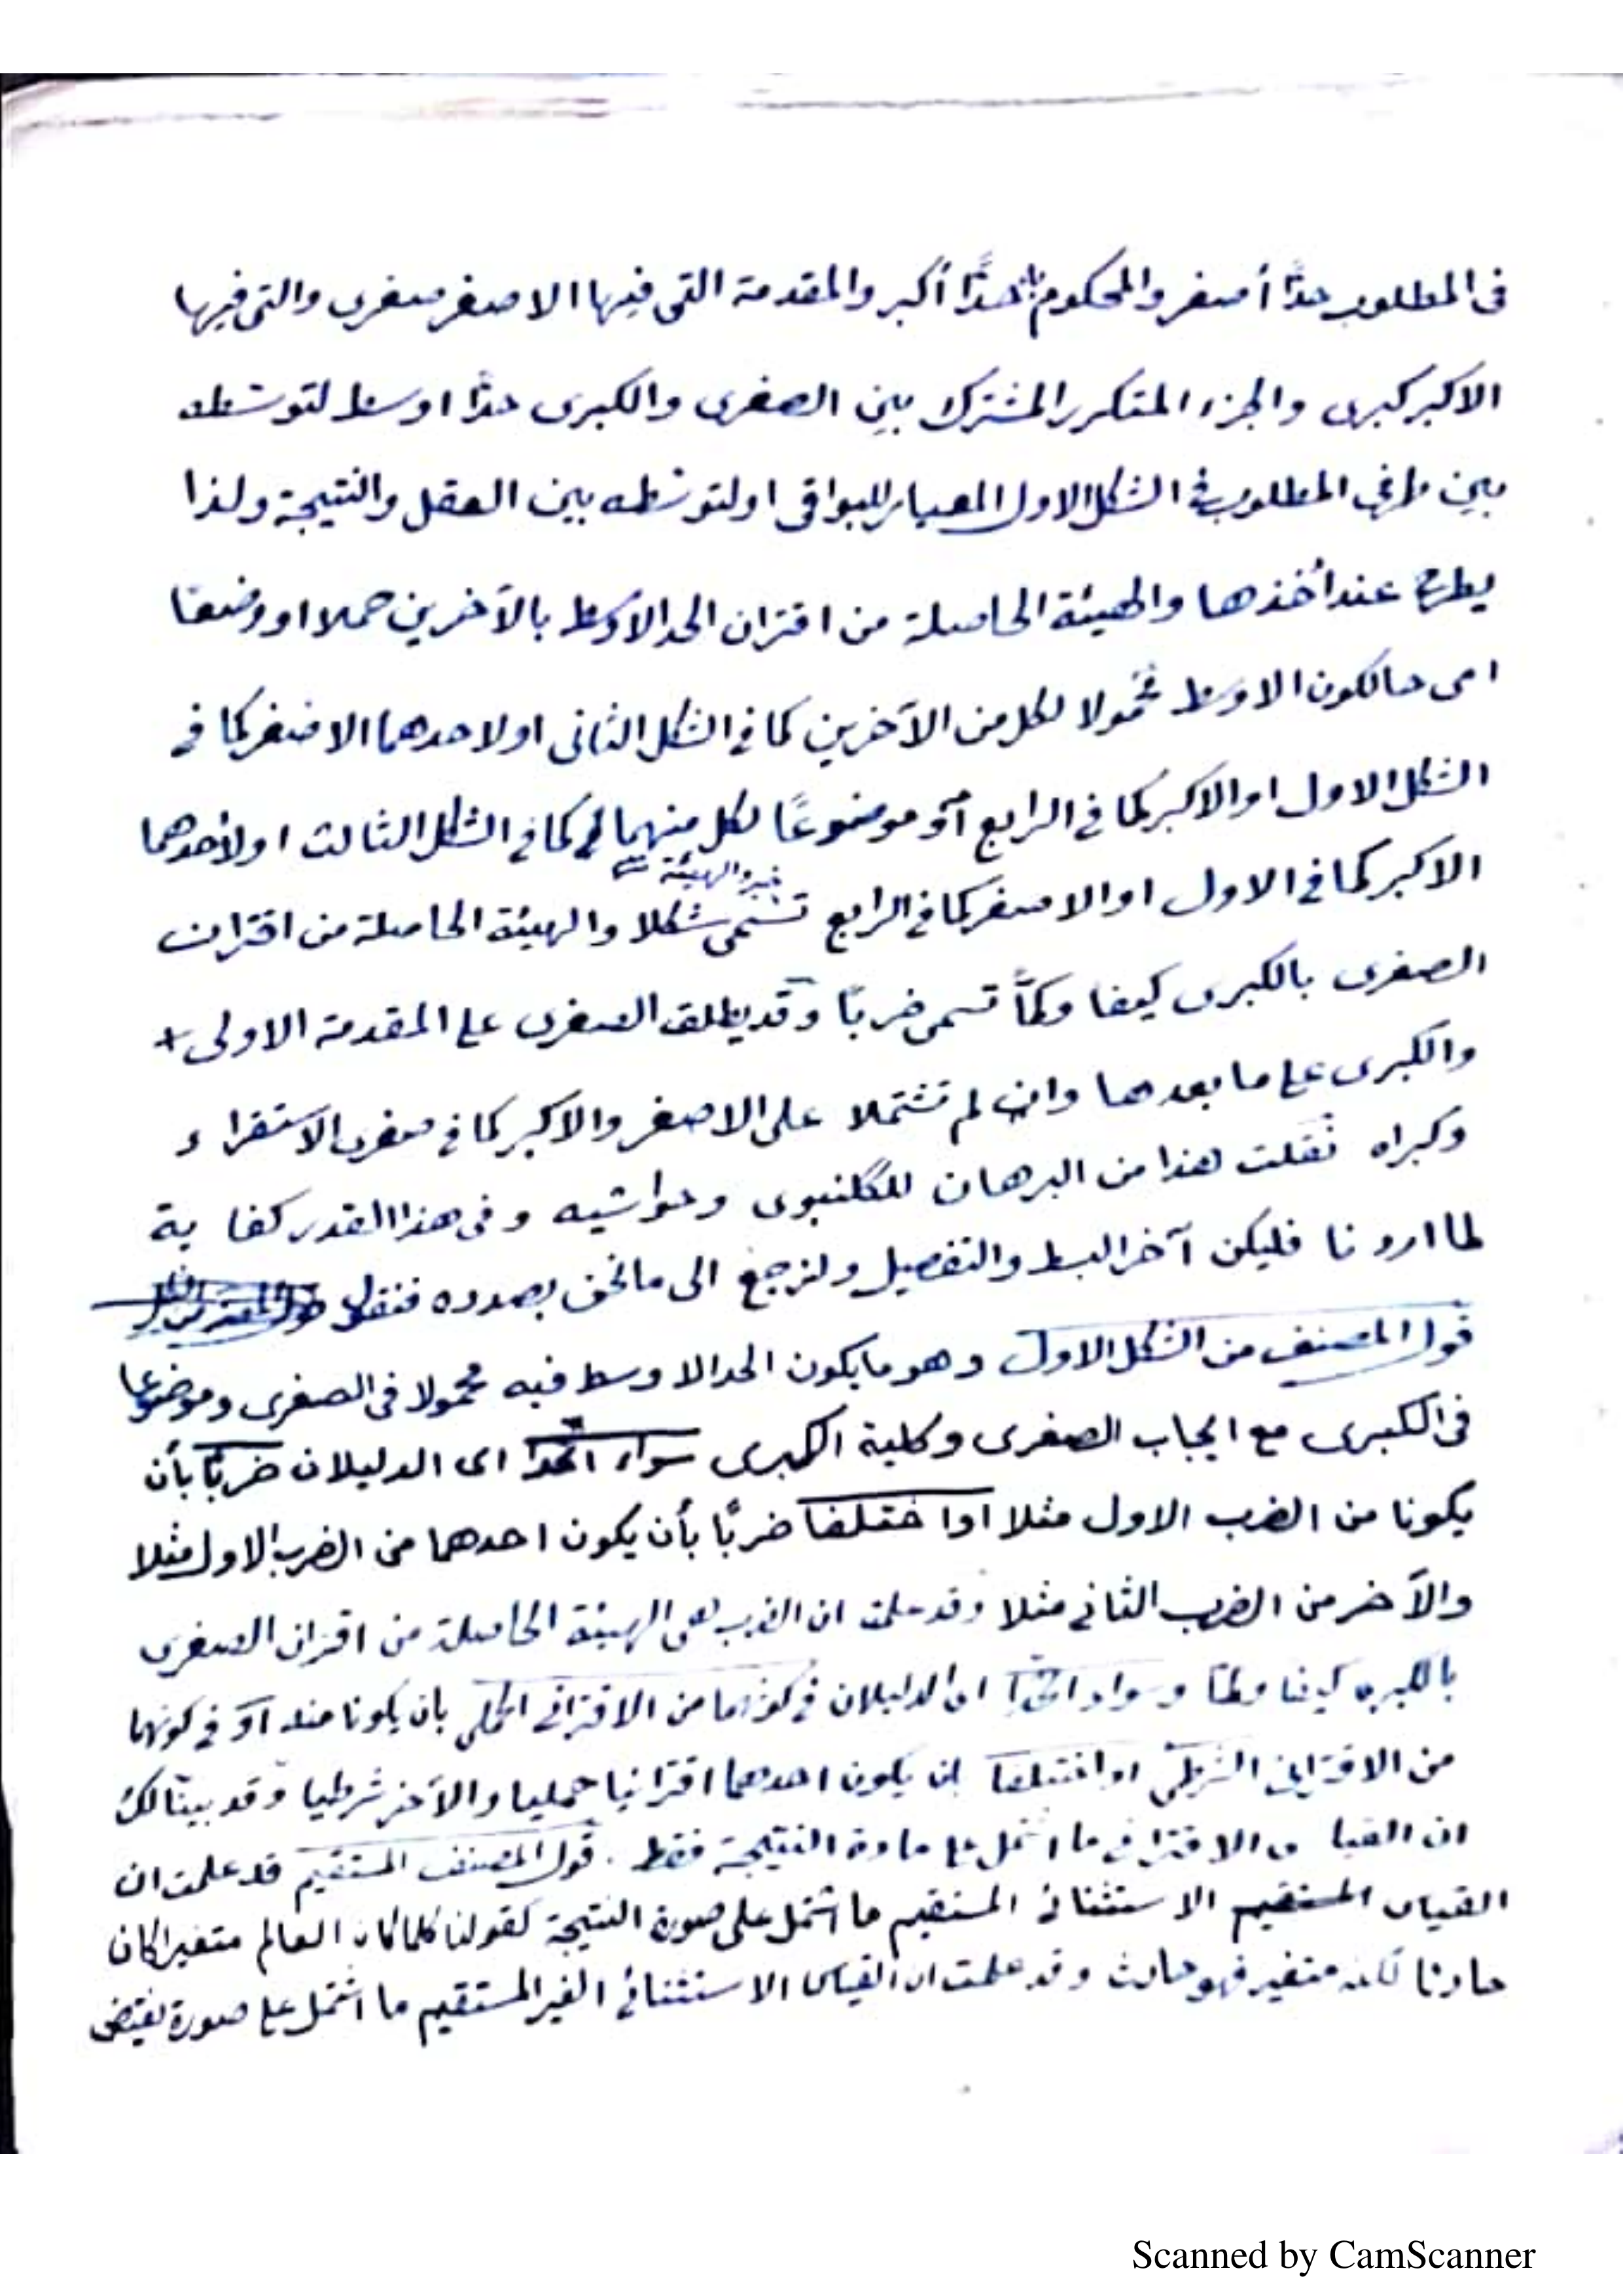 فى المطلوب حدًّا أصغر والمحكوم به حدًّا أكبر والمقدمة التى فيها الاصغر صغرى والتى فيها
الاكبر كبرى والجزء المتكرر المشترك بين الصغرى والكبرى حدًّا اوسط لتوسّطه
بين طرفى المطلوب فى الشكل الاول المعيار للبواقى او لتوسّطه بين العقل والنتيجة ولذا
يطرح عند أخذها والهيئة الحاصلة من اقتران الحد الاوسط بالآخرين حملا او وضعًا
اى حالكون الاوسط محمولا لكل من الآخرين كما فى الشكل الثانى او لاحدهما الاصغر كما فى
الشكل الاول او الاكبر كما فى الرابع أو موضوعًا لكل منهما كما فى الشكل الثالث او لأحدهما
خبر والهيئة
الاكبر كما فى الاول او الاصغر كما فى الرابع تسمّى شكلا والهيئة الحاصلة من اقتران
الصغرى بالكبرى كيفا وكمًّا تسمى ضربًا وقد يطلق الصغرى على المقدمة الاولى
والكبرى على ما بعدها وان لم تشتملا على الاصغر والاكبر كما فى صغرى الاستقراء
وكبراه نقلت هذا من البرهان للگلنبوى وحواشيه وفى هذا القدر كفاية
لما اردنا فليكن آخر البسط والتفصيل ولنرجع الى ما نحن بصدده فنقول
قول المصنف من الشكل الاول وهو ما يكون الحد الاوسط فيه محمولا فى الصغرى وموضوعا
فى الكبرى مع ايجاب الصغرى وكلية الكبرى سواء اتحدا اى الدليلان ضربًا بأن
يكونا من الضرب الاول مثلا او اختلفا ضربًا بأن يكون احدهما من الضرب الاول مثلا
والآخر من الضرب الثانى مثلا وقد علمت ان الضرب هى الهيئة الحاصلة من اقتران الصغرى
بالكبرى كيفا وكمًّا وسواء اتحدا اى الدليلان فى كونهما من الاقترانى الحملى بان يكونا منه أو فى كونهما
من الاقترانى الشرطى او اختلفا بان يكون احدهما اقترانيا حمليا والآخر شرطيا وقد بينّا لك
ان القياس الاقترانى ما اشتمل على مادة النتيجة فقط . قول المصنف المستقيم قد علمت ان
القياس المستقيم الاستثنائى المستقيم ما اشتمل على صورة النتيجة كقولنا كلما كان العالم متغيرا كان
حادثا لكنه متغير فهو حادث وقد علمت ان القياس الاستثنائى الغير المستقيم ما اشتمل على صورة نقيض
Scanned by CamScanner